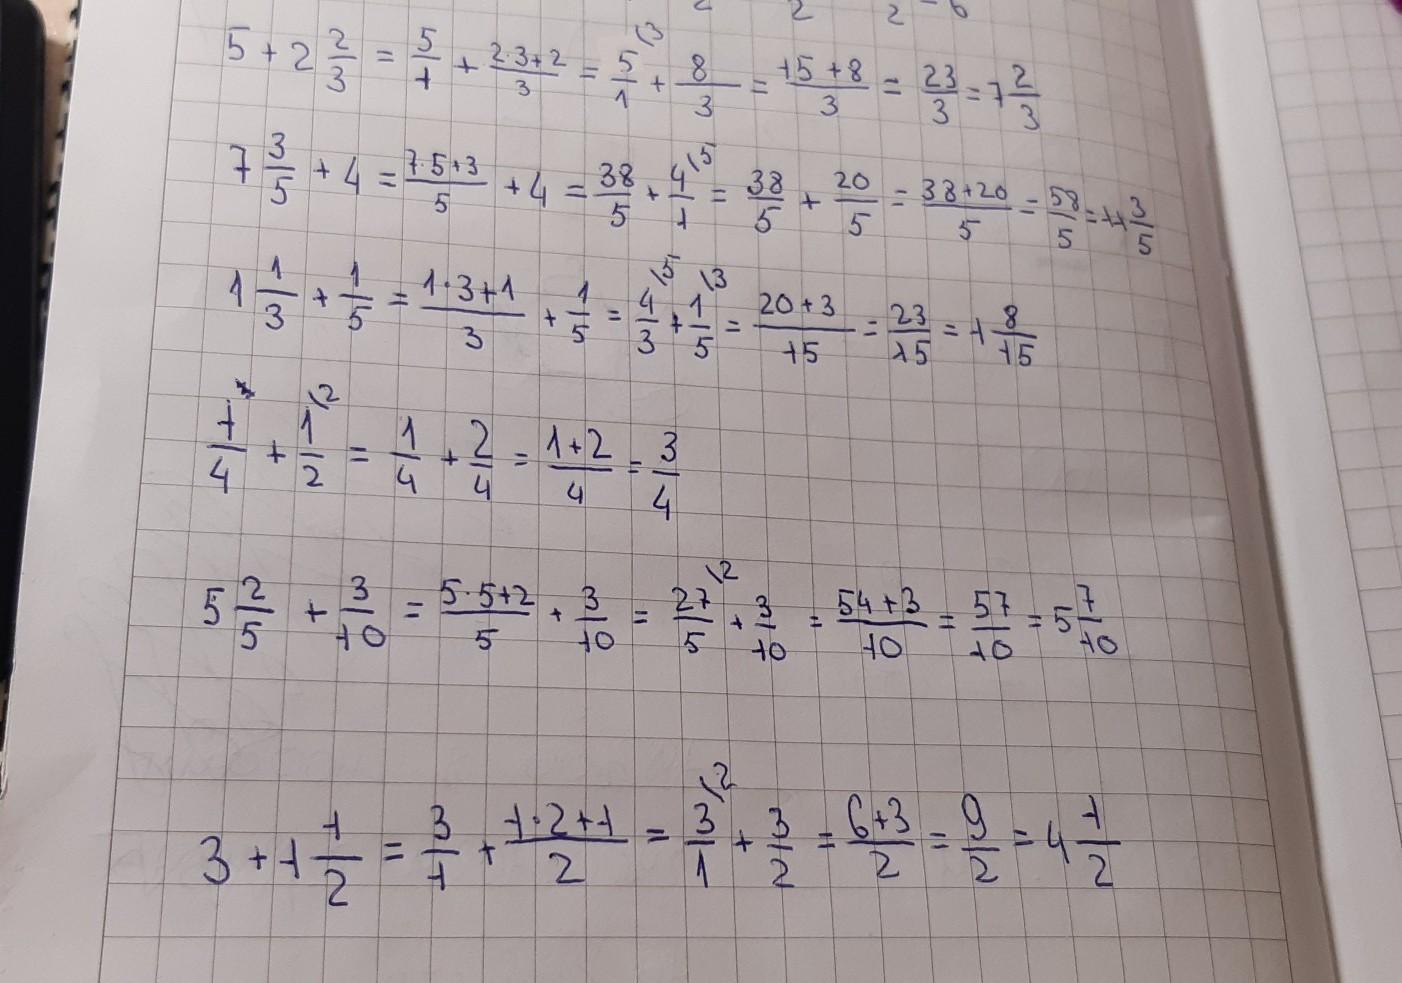 2 2 2 - 6
5 + 2 2/3 = 5/1 + (2·3+2)/3 = 5/1 \3 + 8/3 = (15+8)/3 = 23/3 = 7 2/3
7 3/5 + 4 = (7·5+3)/5 + 4 = 38/5 + 4/1 \5 = 38/5 + 20/5 = (38+20)/5 = 58/5 = 11 3/5
1 1/3 + 1/5 = (1·3+1)/3 + 1/5 = 4/3 \5 + 1/5 \3 = (20+3)/15 = 23/15 = 1 8/15
1/4 + 1/2 \2 = 1/4 + 2/4 = (1+2)/4 = 3/4
5 2/5 + 3/10 = (5·5+2)/5 + 3/10 = 27/5 \2 + 3/10 = (54+3)/10 = 57/10 = 5 7/10
3 + 1 1/2 = 3/1 + (1·2+1)/2 = 3/1 \2 + 3/2 = (6+3)/2 = 9/2 = 4 1/2